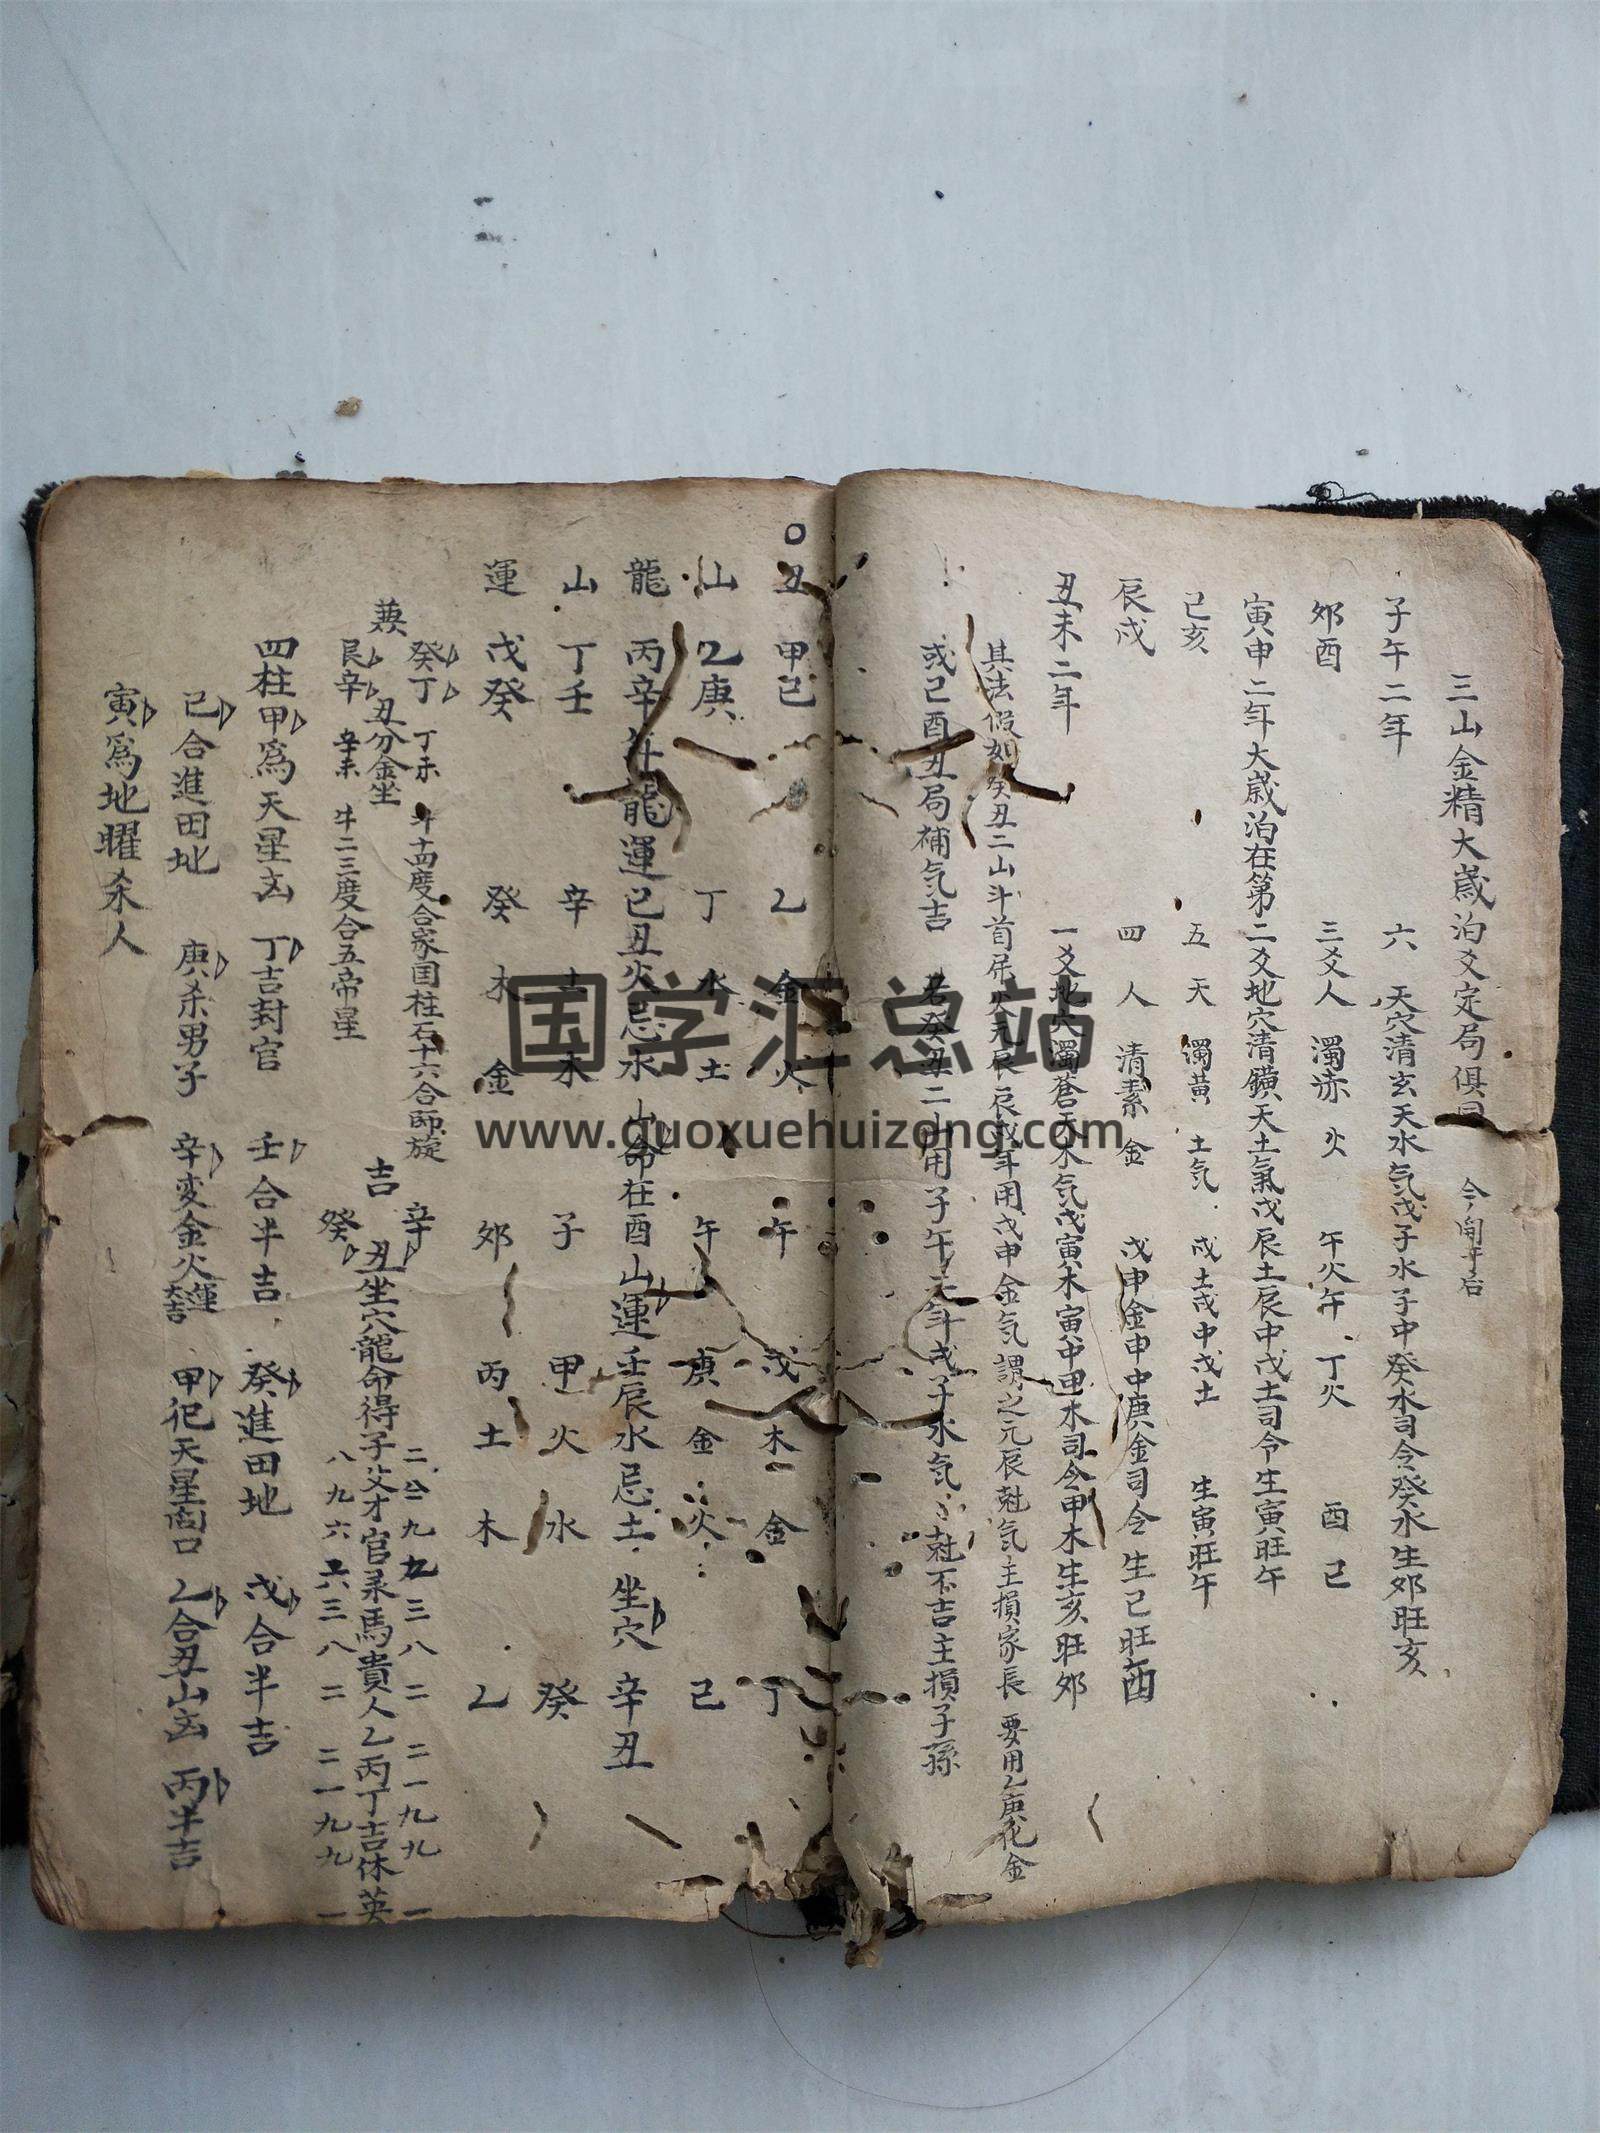 三山金精大歲泊爻定局俱同 今開于后
子午二年 六 天穴清玄天水気戊子水子中癸水司令癸水生郊旺亥
郊酉 三爻人 濁赤 火 午火午 丁火 酉己
寅申二年大歲泊在第二爻地穴清鐄天土氣戊辰土辰中戊土司令生寅旺午
己亥 五 天 濁黄 土気 戌土戌中戊土 生寅旺午
辰戌 四 人 清素 金 戊申金申中庚金司令生己旺酉
丑未二年 一爻地穴濁蒼天木気戊寅木寅中甲木司令甲木生亥旺郊
其法假如癸丑二山斗首屬火元辰辰戌年用戊申金気謂之元辰尅気主損家長 要用乙庚化金
或己酉丑局補気吉 若癸丑二山用子午元年戊子水気 尅不吉主損子孫
○丑 甲己 乙 金 火 午 戊 木 金 丁
山 乙庚 丁 水 土 午 庚 金 火 己
龍 丙辛年斗龍運己丑火忌水 山命在酉山運壬辰水忌土 坐穴 辛丑
山 丁壬 辛 土 木 子 甲 火 水 癸
運 戊癸 癸 木 金 郊 丙 土 木 乙
癸丁 丁未 斗十四度合家国柱石十六合師旋 辛 二八九五三八二二一九九一
兼 丑分金坐 吉 丑坐穴龍命得子父才官彔馬貴人乙丙丁吉休英
艮辛 辛未 斗二三度合五帝星 癸 八九六六三八二二一九九一
四柱甲爲天星凶 丁吉封官 壬合半吉 癸進田地 戊合半吉
己合進田地 庚杀男子 辛变金火運大吉 甲犯天星 乙合丑山凶 丙半吉
寅爲地曜杀人
国学汇总站
www.guoxuehuizong.com